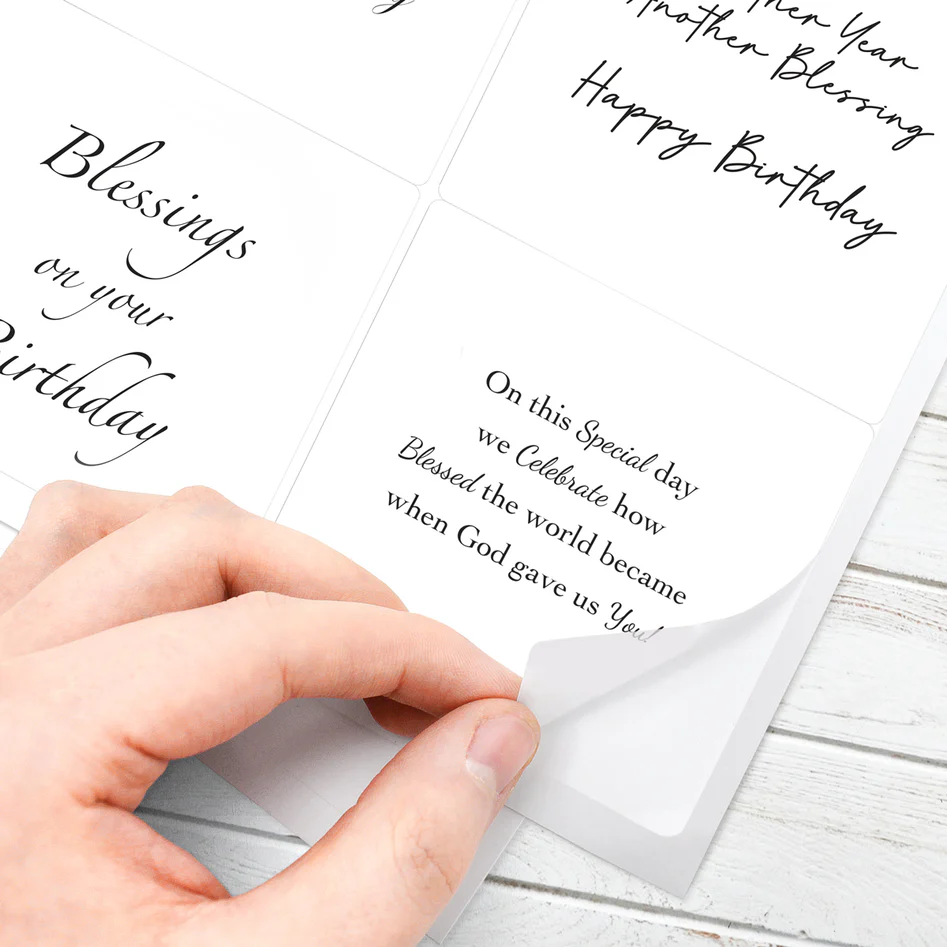 Another Year
Another Blessing
Happy Birthday
Blessings
on your
Birthday
On this Special day
we Celebrate how
Blessed the world became
when God gave us You!